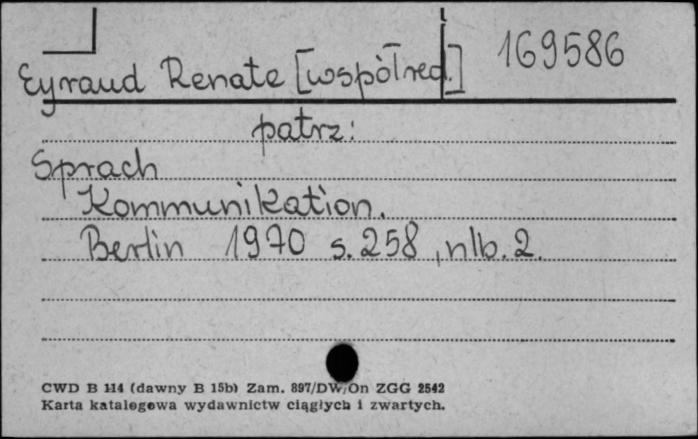 Eyraud Renate [współred.] 169586
patrz:
Sprach
Kommunikation.
Berlin 1970 s. 258, nlb. 2.
CWD B 114 (dawny B 15b) Zam. 897/DW/On ZGG 2542
Karta katalogowa wydawnictw ciągłych i zwartych.